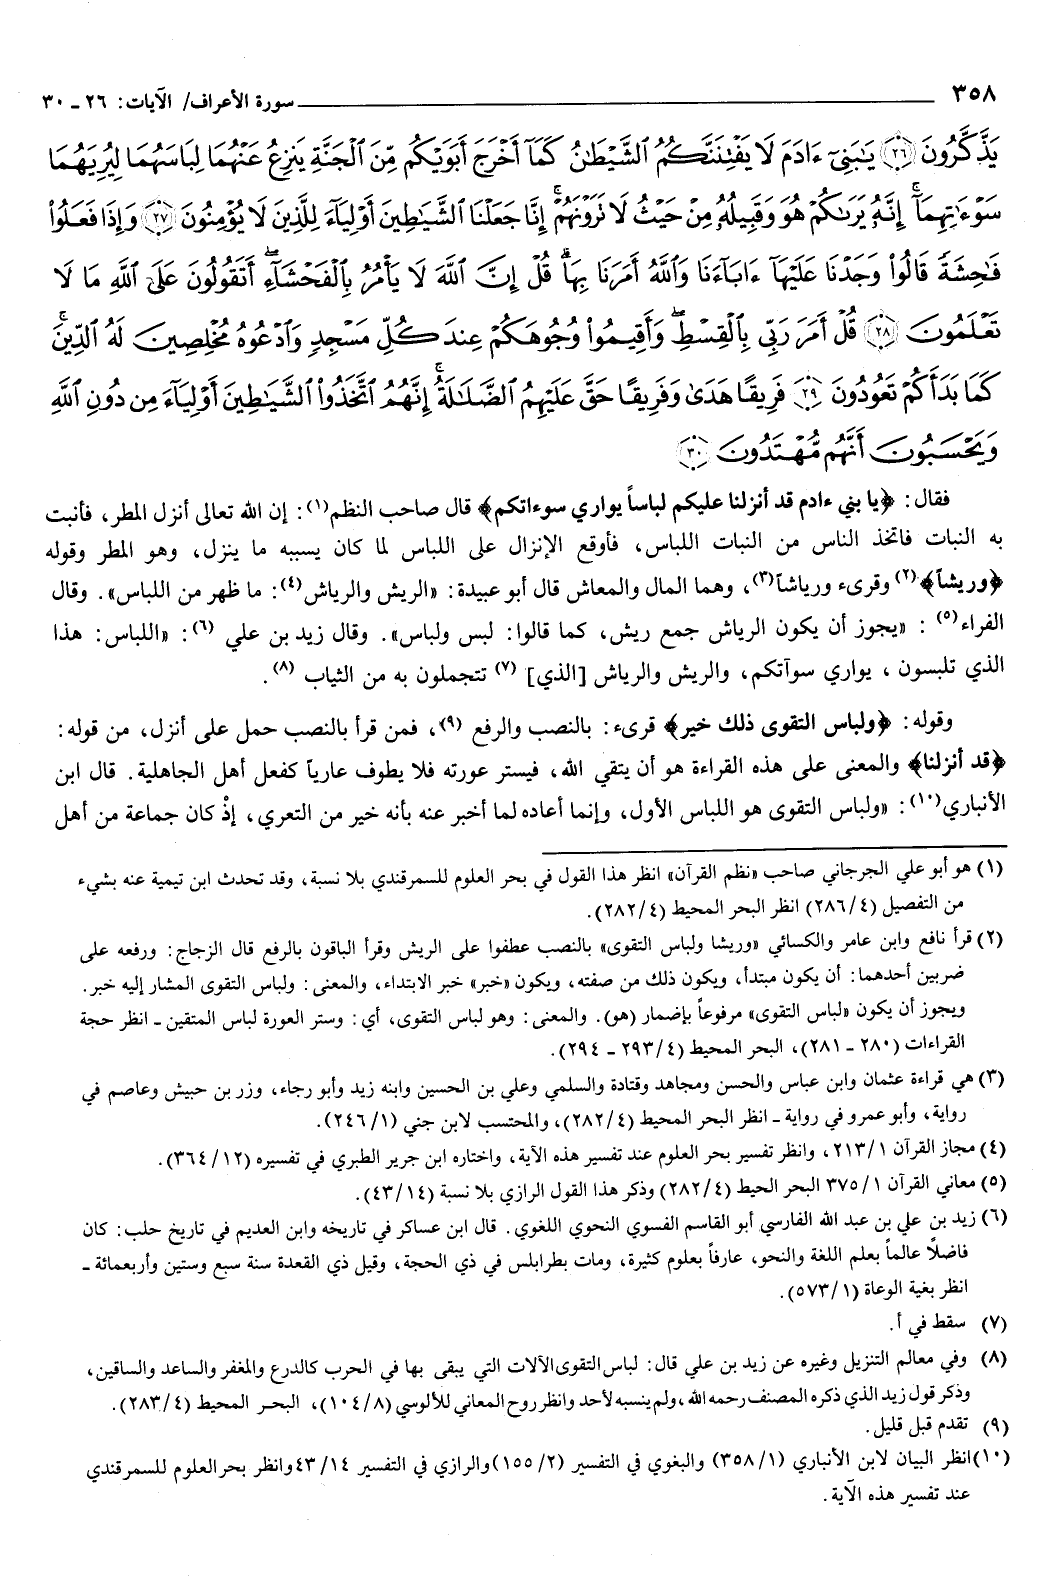 ٣٥٨ سورة الأعراف/ الآيات: ٢٦ ـ ٣٠
يَذَّكَّرُونَ ﴿٢٦﴾ يَـٰبَنِىٓ ءَادَمَ لَا يَفْتِنَنَّكُمُ ٱلشَّيْطَـٰنُ كَمَآ أَخْرَجَ أَبَوَيْكُم مِّنَ ٱلْجَنَّةِ يَنزِعُ عَنْهُمَا لِبَاسَهُمَا لِيُرِيَهُمَا
سَوْءَٰتِهِمَآ ۗ إِنَّهُۥ يَرَىٰكُمْ هُوَ وَقَبِيلُهُۥ مِنْ حَيْثُ لَا تَرَوْنَهُمْ ۗ إِنَّا جَعَلْنَا ٱلشَّيَـٰطِينَ أَوْلِيَآءَ لِلَّذِينَ لَا يُؤْمِنُونَ ﴿٢٧﴾ وَإِذَا فَعَلُوا۟
فَـٰحِشَةً قَالُوا۟ وَجَدْنَا عَلَيْهَآ ءَابَآءَنَا وَٱللَّهُ أَمَرَنَا بِهَا ۗ قُلْ إِنَّ ٱللَّهَ لَا يَأْمُرُ بِٱلْفَحْشَآءِ ۖ أَتَقُولُونَ عَلَى ٱللَّهِ مَا لَا
تَعْلَمُونَ ﴿٢٨﴾ قُلْ أَمَرَ رَبِّى بِٱلْقِسْطِ ۖ وَأَقِيمُوا۟ وُجُوهَكُمْ عِندَ كُلِّ مَسْجِدٍ وَٱدْعُوهُ مُخْلِصِينَ لَهُ ٱلدِّينَ ۚ
كَمَا بَدَأَكُمْ تَعُودُونَ ﴿٢٩﴾ فَرِيقًا هَدَىٰ وَفَرِيقًا حَقَّ عَلَيْهِمُ ٱلضَّلَـٰلَةُ ۗ إِنَّهُمُ ٱتَّخَذُوا۟ ٱلشَّيَـٰطِينَ أَوْلِيَآءَ مِن دُونِ ٱللَّهِ
وَيَحْسَبُونَ أَنَّهُم مُّهْتَدُونَ ﴿٣٠﴾
فقال: ﴿يا بني ءادم قد أنزلنا عليكم لباساً يواري سوءاتكم﴾ قال صاحب النظم(١): إن الله تعالى أنزل المطر، فأنبت
به النبات فاتخذ الناس من النبات اللباس، فأوقع الإنزال على اللباس لما كان يسببه ما ينزل، وهو المطر وقوله
﴿وريشاً﴾(٢) وقرىء ورياشاً(٣)، وهما المال والمعاش قال أبو عبيدة: «الريش والرياش(٤): ما ظهر من اللباس». وقال
الفراء(٥) : «يجوز أن يكون الرياش جمع ريش، كما قالوا: لبس ولباس». وقال زيد بن علي (٦): «اللباس: هذا
الذي تلبسون ، يواري سوآتكم، والريش والرياش [الذي] (٧) تتجملون به من الثياب (٨).
وقوله: ﴿ولباس التقوى ذلك خير﴾ قرىء: بالنصب والرفع (٩)، فمن قرأ بالنصب حمل على أنزل، من قوله:
﴿قد أنزلنا﴾ والمعنى على هذه القراءة هو أن يتقي الله، فيستر عورته فلا يطوف عارياً كفعل أهل الجاهلية. قال ابن
الأنباري(١٠): «ولباس التقوى هو اللباس الأول، وإنما أعاده لما أخبر عنه بأنه خير من التعري، إذْ كان جماعة من أهل
(١) هو أبو علي الجرجاني صاحب «نظم القرآن» انظر هذا القول في بحر العلوم للسمرقندي بلا نسبة، وقد تحدث ابن تيمية عنه بشيء
من التفصيل (٢٨٦/٤) انظر البحر المحيط (٢٨٢/٤).
(٢) قرأ نافع وابن عامر والكسائي «وريشا ولباس التقوى» بالنصب عطفوا على الريش وقرأ الباقون بالرفع قال الزجاج: ورفعه على
ضربين أحدهما: أن يكون مبتدأ، ويكون ذلك من صفته، ويكون «خبر» خبر الابتداء، والمعنى: ولباس التقوى المشار إليه خبر.
ويجوز أن يكون «لباس التقوى» مرفوعاً بإضمار (هو). والمعنى: وهو لباس التقوى، أي: وستر العورة لباس المتقين ـ انظر حجة
القراءات (٢٨٠ ـ ٢٨١)، البحر المحيط (٢٩٣/٤ ـ ٢٩٤).
(٣) هي قراءة عثمان وابن عباس والحسن ومجاهد وقتادة والسلمي وعلي بن الحسين وابنه زيد وأبو رجاء، وزر بن حبيش وعاصم في
رواية، وأبو عمرو في رواية ـ انظر البحر المحيط (٢٨٢/٤)، والمحتسب لابن جني (٢٤٦/١).
(٤) مجاز القرآن ٢١٣/١، وانظر تفسير بحر العلوم عند تفسير هذه الآية، واختاره ابن جرير الطبري في تفسيره (٣٦٤/١٢).
(٥) معاني القرآن ٣٧٥/١ البحر الحيط (٢٨٢/٤) وذكر هذا القول الرازي بلا نسبة (٤٣/١٤).
(٦) زيد بن علي بن عبد الله الفارسي أبو القاسم الفسوي النحوي اللغوي. قال ابن عساكر في تاريخه وابن العديم في تاريخ حلب: كان
فاضلاً عالماً بعلم اللغة والنحو، عارفاً بعلوم كثيرة، ومات بطرابلس في ذي الحجة، وقيل ذي القعدة سنة سبع وستين وأربعمائة ـ
انظر بغية الوعاة (٥٧٣/١).
(٧) سقط في أ.
(٨) وفي معالم التنزيل وغيره عن زيد بن علي قال: لباس التقوى الآلات التي يبقى بها في الحرب كالدرع والمغفر والساعد والساقين،
وذكر قول زيد الذي ذكره المصنف رحمه الله، ولم ينسبه لأحد وانظر روح المعاني للألوسي (١٠٤/٨)، البحر المحيط (٢٨٣/٤).
(٩) تقدم قبل قليل.
(١٠) انظر البيان لابن الأنباري (٣٥٨/١) والبغوي في التفسير (١٥٥/٢) والرازي في التفسير ٤٣/١٤ وانظر بحر العلوم للسمرقندي
عند تفسير هذه الآية.